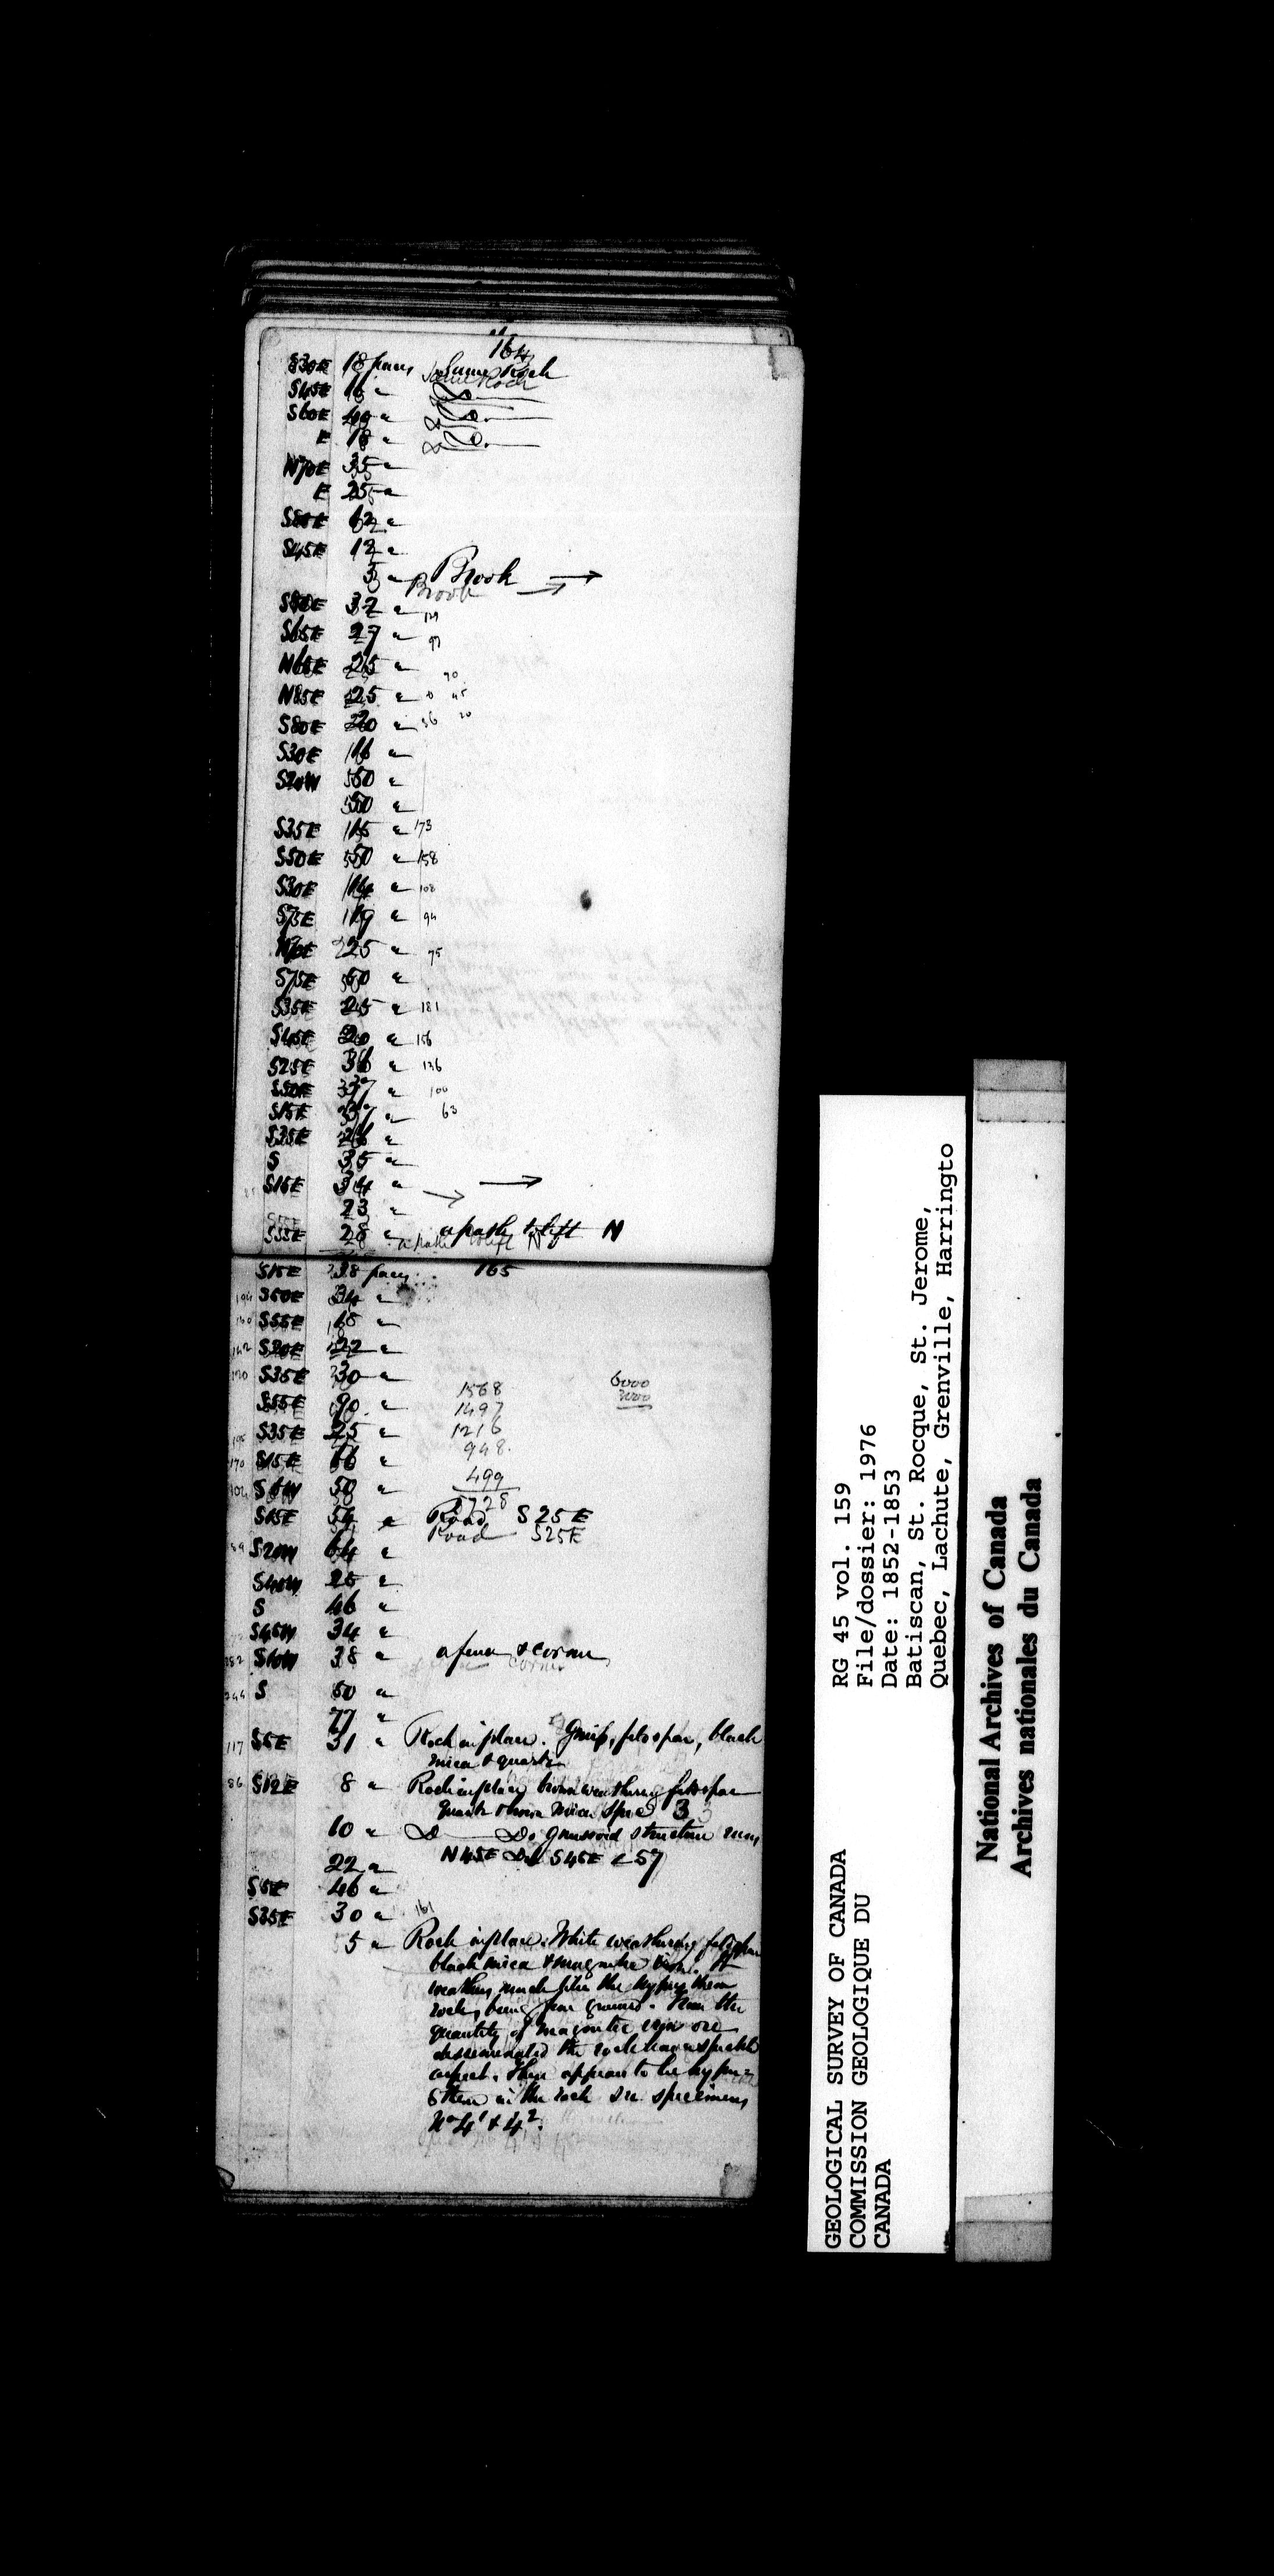 164
S30E 18 paces Same Rock
S45E 16 "
S60E 40 "
E 18 "
N70E 35 "
E 25 "
S80E 62 "
S45E 12 "
5 " Brook →
S80E 32 " 124
S65E 27 " 97
N65E 25 " 70
N85E 25 " 45
S80E 20 " 36 20
S30E 16 "
S20W 50 "
50 "
S35E 15 " 173
S50E 50 " 158
S30E 14 " 108
S75E 19 " 94
N70E 25 " 75
S75E 50 "
S35E 25 " 181
S45E 20 " 156
S25E 36 " 136
S50E 37 " 100
S15E 37 " 63
S35E 26 "
S 35 "
S15E 34 " →
23 "
S35E 28 " a path to left N
165
S15E 38 paces
S50E 34 "
S55E 18 "
S20E 22 "
S35E 30 " 6000
S55E 90 " 1568
S35E 25 " 1497
1216
S15E 66 " 948
50 " 499
5728
S15E 54 " Road S25E
S20W 64 "
S40W 25 "
S 46 "
S45W 34 "
S10W 38 " a fence & corner
S 50 "
77 "
S5E 31 " Rock in place. Gneiss, felspar, black
mica & quartz
S12E 8 " Rock in place brown weathering felspar
quartz & brown mica Spec 3
10 " Do Do gneissoid structure runs
N45E Dip S45E < 57
22 "
S5E 46 "
S35E 30 " 161
5 " Rock in place. White weathering felspar
black mica & magnetic iron. It
weathers much like the hypersthene
rocks being fine grained. From the
quantity of magnetic iron ore
disseminated the rock has a speckled
aspect. There appears to be hyper
sthene in the rock See specimens
No 4¹ & 4².
GEOLOGICAL SURVEY OF CANADA
COMMISSION GEOLOGIQUE DU
CANADA
RG 45 vol. 159
File/dossier: 1976
Date: 1852-1853
Batiscan, St. Rocque, St. Jerome,
Quebec, Lachute, Grenville, Harringto
National Archives of Canada
Archives nationales du Canada